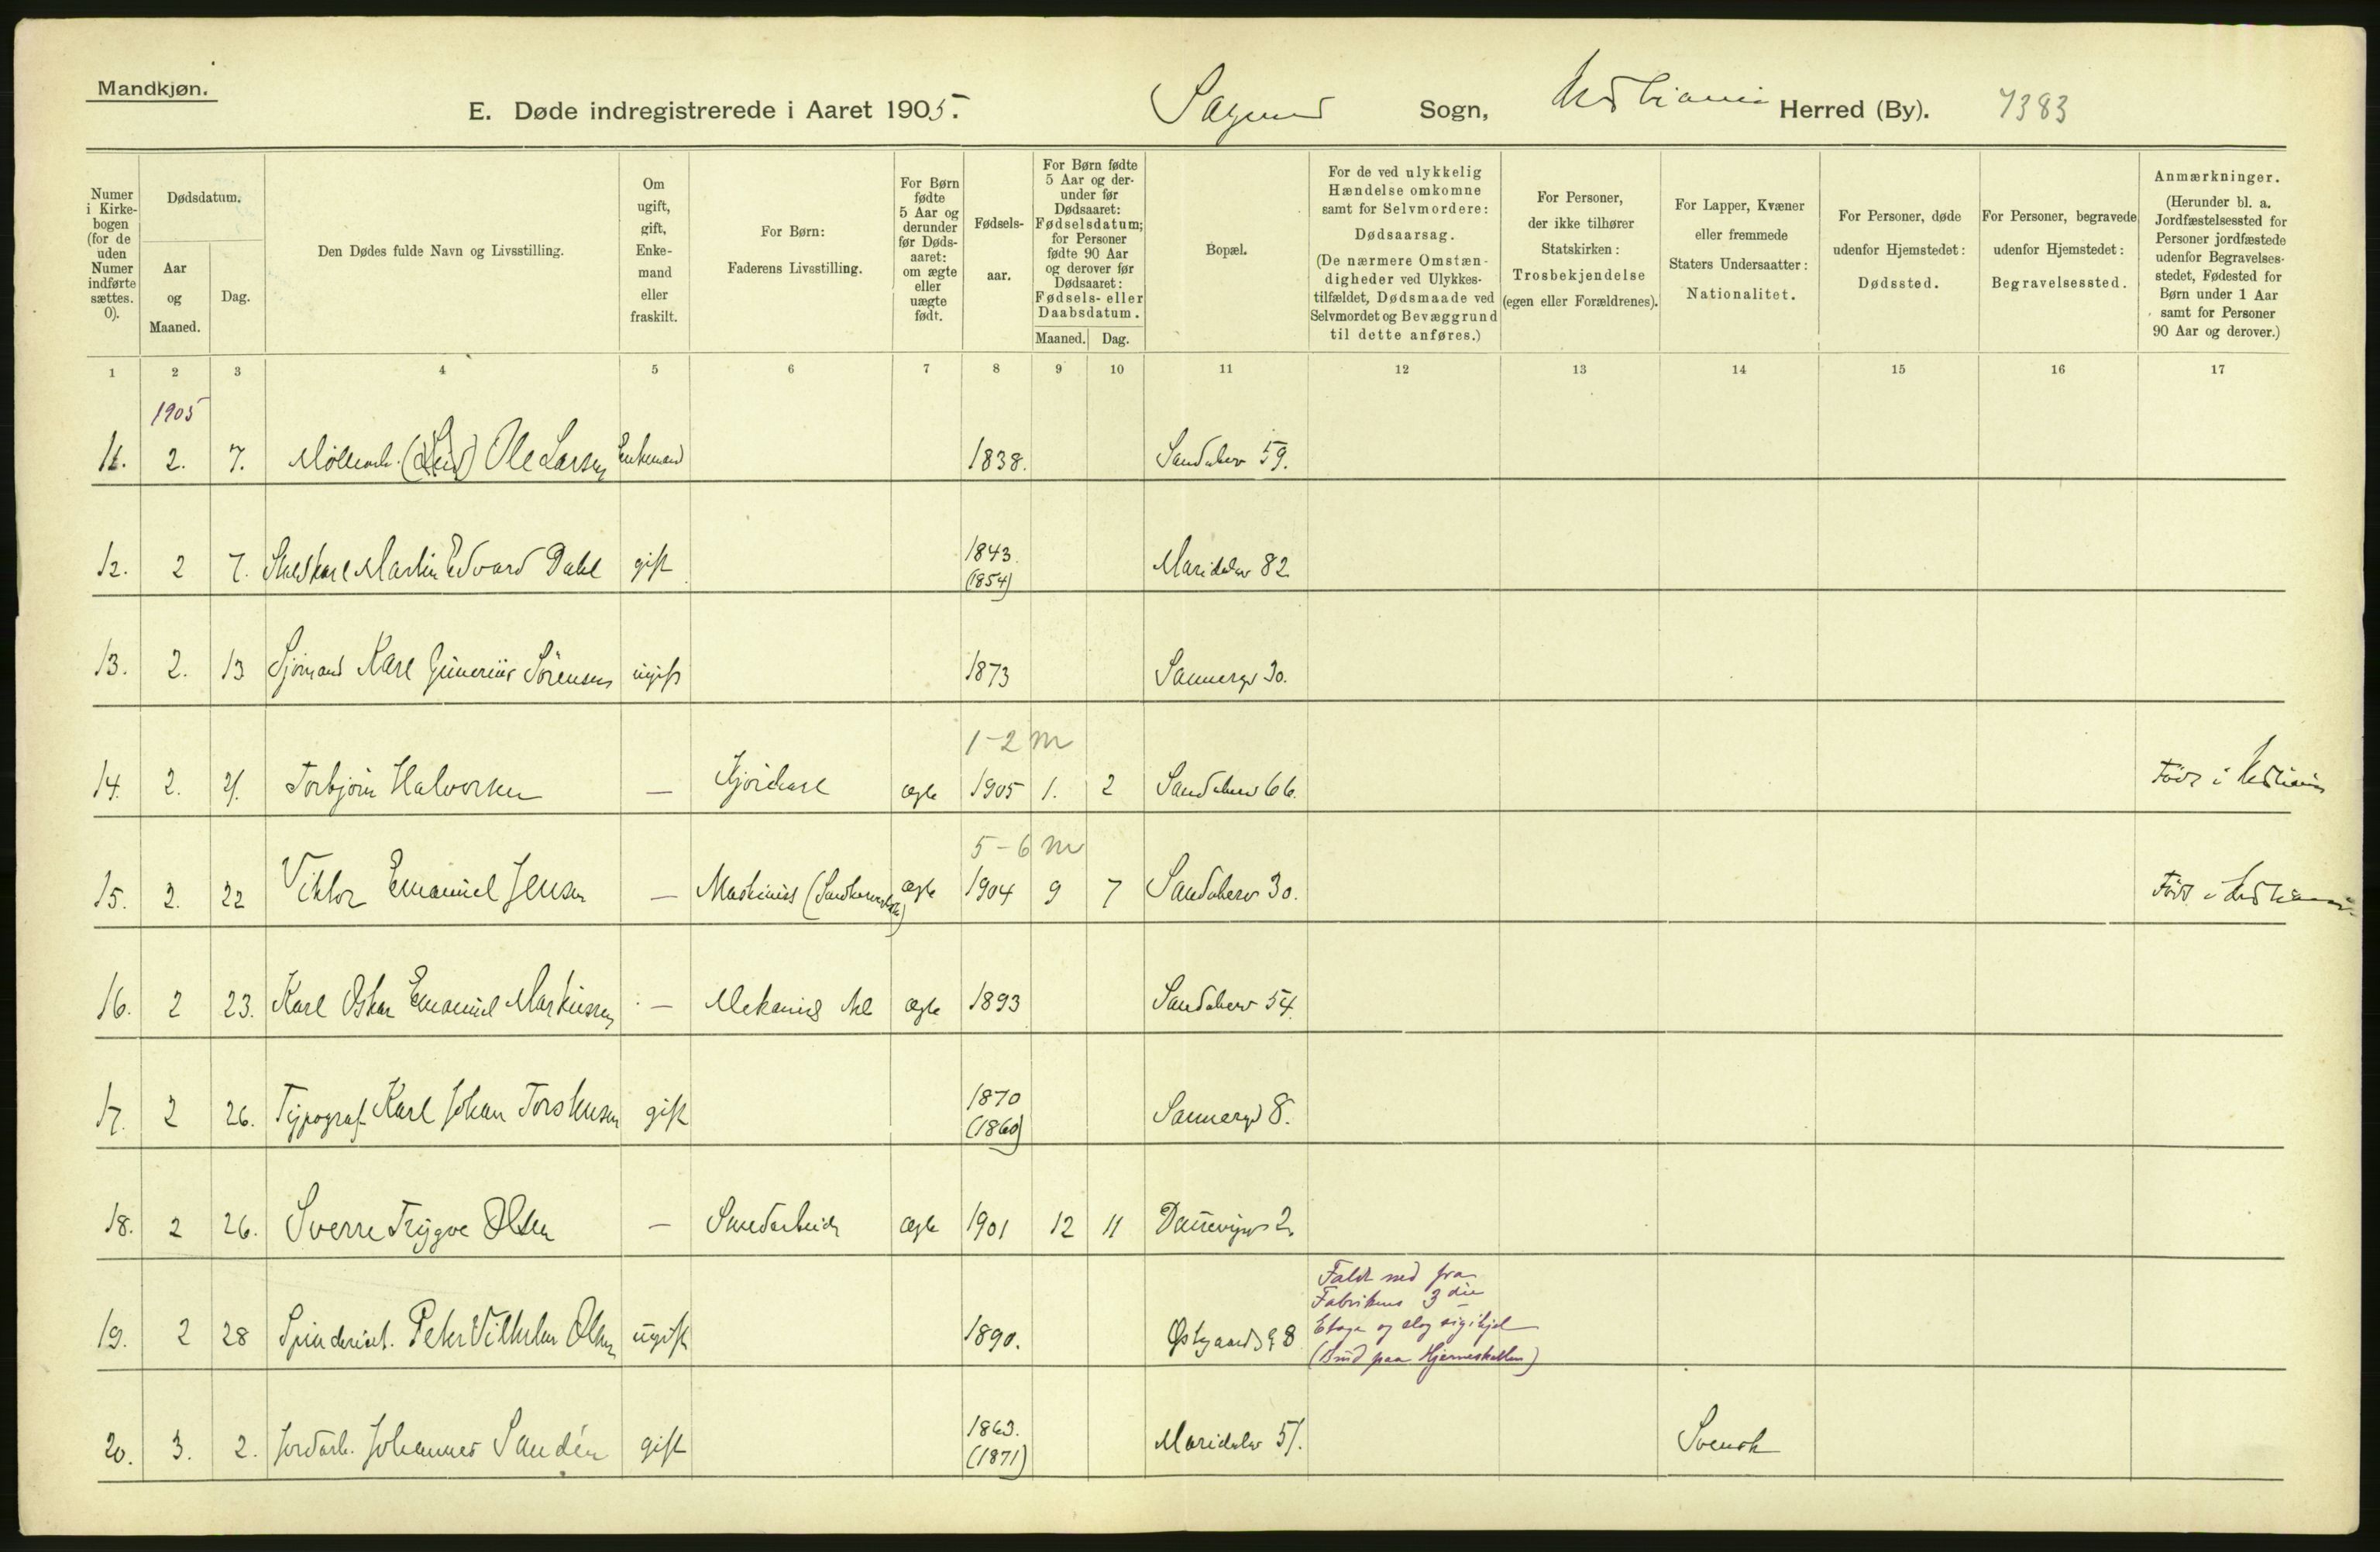 Mandkjøn.
E. Døde indregistrerede i Aaret 1905. Sagene Sogn, Kristiania Herred (By). 7383
Numer i Kirkebogen (for de uden Numer indførte sættes. 0).
Dødsdatum.
Aar og Maaned.
Dag.
Den Dødes fulde Navn og Livsstilling.
Om ugift, gift, Enkemand eller fraskilt.
For Børn: Faderens Livsstilling.
For Børn fødte 5 Aar og derunder før Dødsaaret: om ægte eller uægte født.
Fødselsaar.
For Børn fødte 5 Aar og derunder før Dødsaaret: Fødselsdatum; for Personer fødte 90 Aar og derover før Dødsaaret: Fødsels- eller Daabsdatum.
Maaned. Dag.
Bopæl.
For de ved ulykkelig Hændelse omkomne samt for Selvmordere: Dødsaarsag. (De nærmere Omstændigheder ved Ulykkestilfældet, Dødsmaade ved Selvmordet og Bevæggrund til dette anføres.)
For Personer, der ikke tilhører Statskirken: Trosbekjendelse (egen eller Forældrenes).
For Lapper, Kvæner eller fremmede Staters Undersaatter: Nationalitet.
For Personer, døde udenfor Hjemstedet: Dødssted.
For Personer, begravede udenfor Hjemstedet: Begravelsessted.
Anmærkninger. (Herunder bl. a. Jordfæstelsessted for Personer jordfæstede udenfor Begravelsesstedet, Fødested for Børn under 1 Aar samt for Personer 90 Aar og derover.)
1 2 3 4 5 6 7 8 9 10 11 12 13 14 15 16 17
1905
11. 2. 7. Møllearb. Ole Larsen Enkemand 1838. Sandakerv 59.
12. 2 7. Staldkarl Martin Edvard Dahl gift 1843. (1854) Maridalsv 82
13. 2. 13 Sjømand Karl Gunerius Sörensen ugift 1873 Sannergd 30.
1-2 m
14. 2. 21. Torbjörn Halvorsen — Kjörekarl ægte 1905 1. 2 Sandakerv 66. Född i Kristiania
5-6 m
15. 2. 22 Viktor Emanuel Jensen — Maskinist ægte 1904 9 7 Sandakerv 30. Född i Kristiania
16. 2 23. Karl Oskar Emanuel Markussen — Mekanisk Arb ægte 1893 Sandakerv 54.
17. 2 26. Typograf Karl Johan Torstensen gift 1870 (1860) Sannergd 8.
18. 2 26. Sverre Trygve Olsen — Smedarbeider ægte 1901 12 11 Dannevigsv 2.
19. 2 28 Spinderiarb. Peter Vilhelm Olsen ugift 1890. Østgaardsg 8 Faldt ned fra
Fabrikens 3die
Etage og slog sig ihjel
(Brud paa Hjerneskallen)
20. 3. 2. Jordarb. Johannes Sandén gift 1863. (1871) Maridalsv 51. Svensk